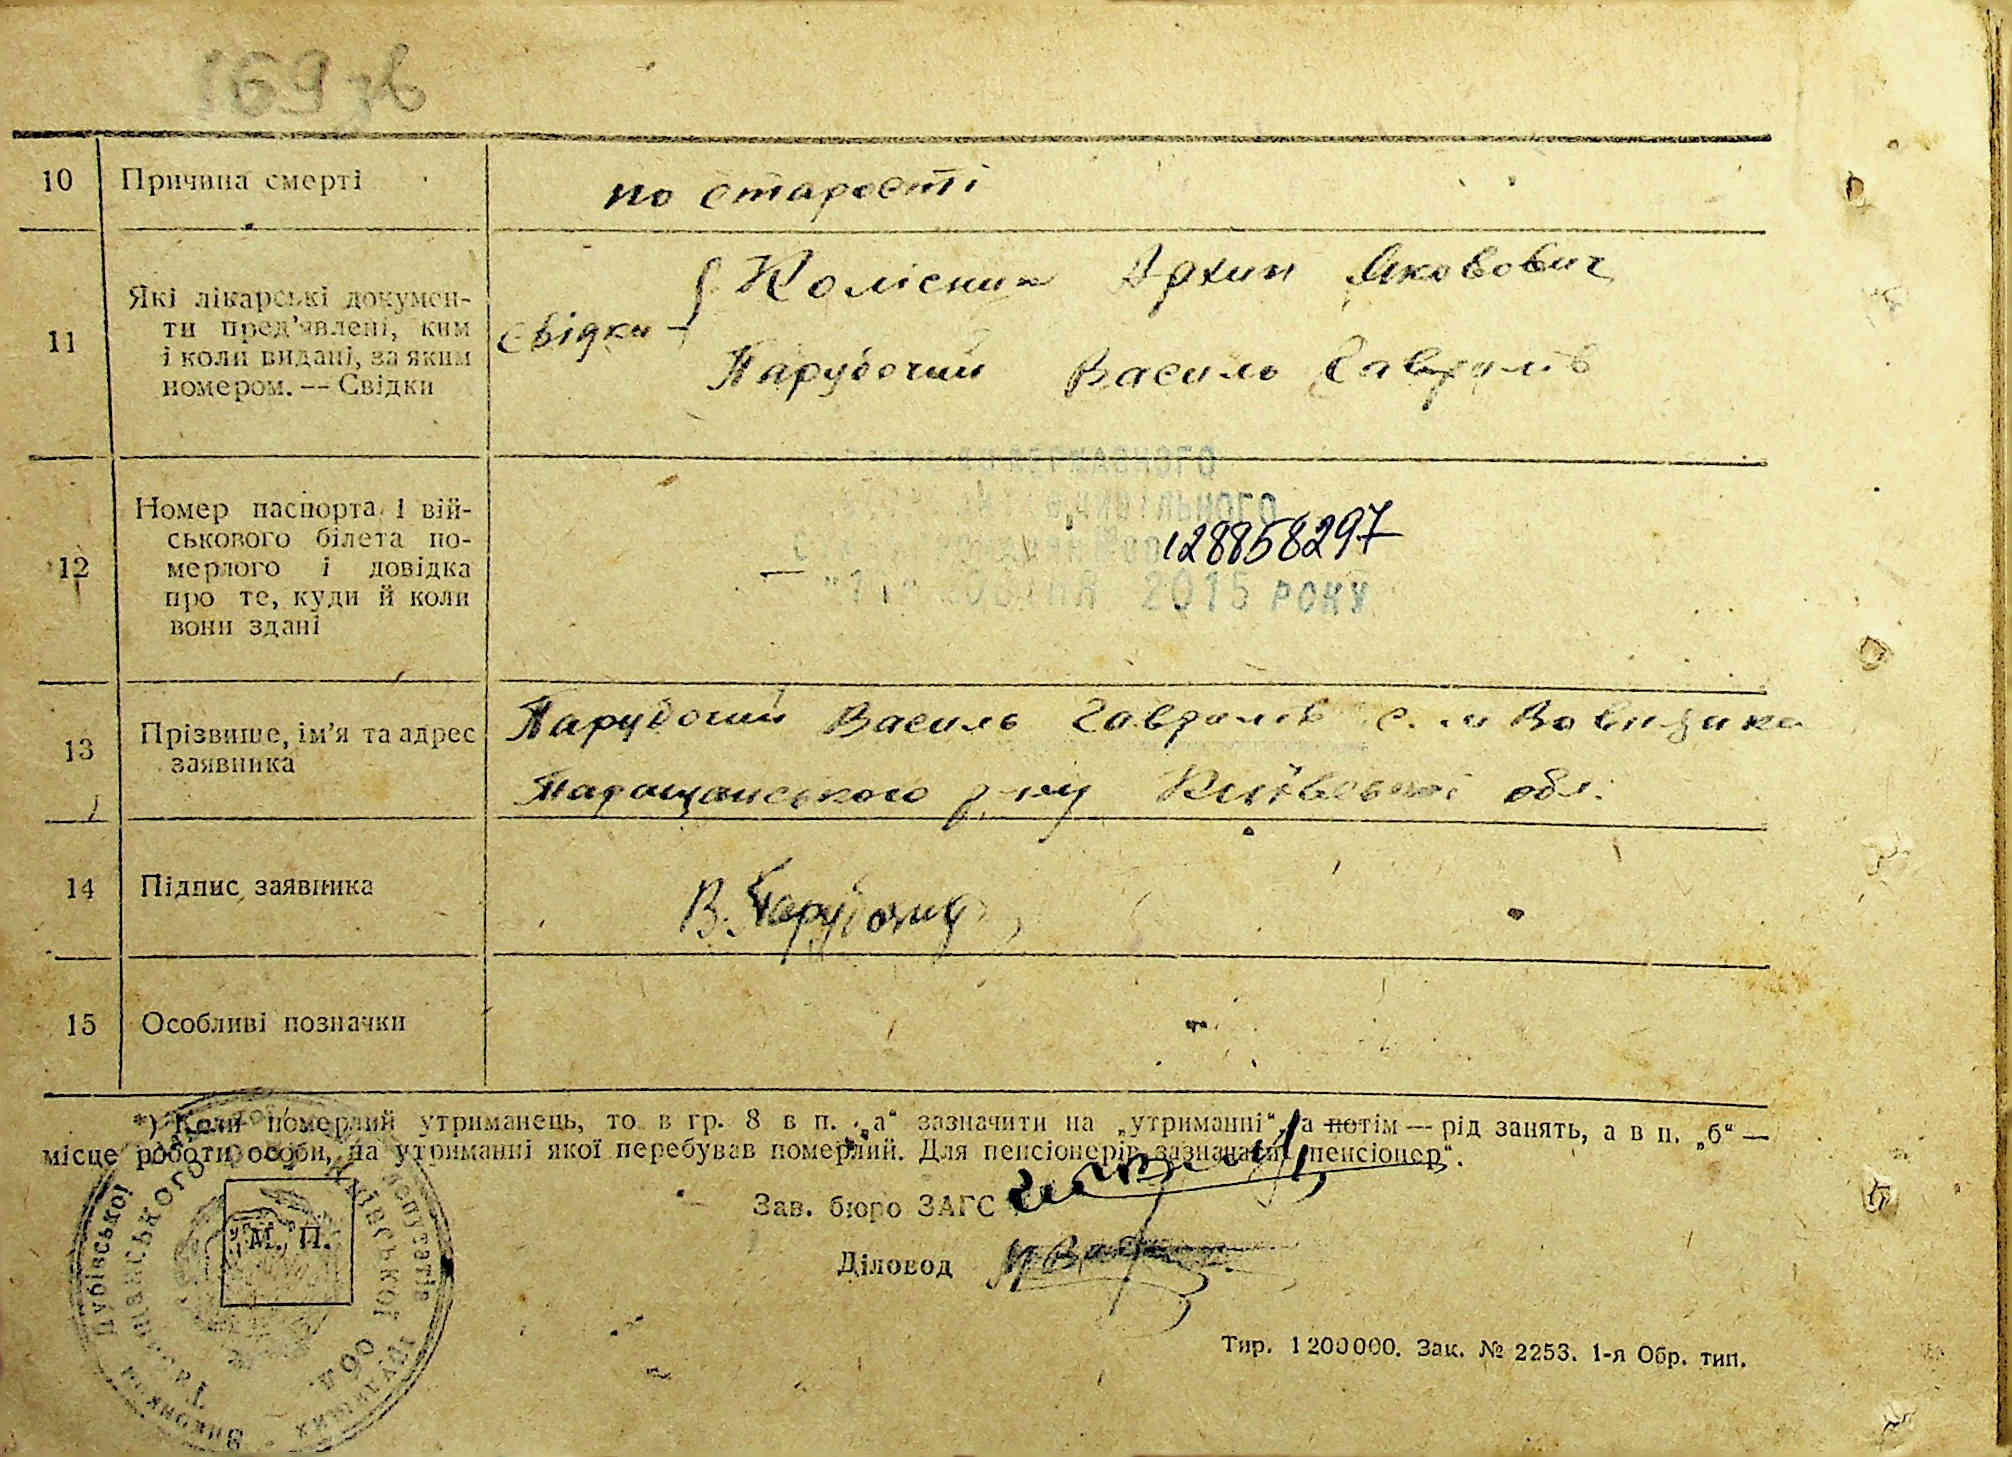 10 Причина смерті по старості
Колісник Архип Якович
11 Які лікарські докумен-
ти пред'явлені, ким
і коли видані, за яким
номером. — Свідки
свідки
Парубочий Василь Гаврилів
12 Номер паспорта і вій-
ськового білета по-
мерлого і довідка
про те, куди й коли
вони здані
—
ДЕРЖАВНОГО
128858297
2015 РОКУ
13 Прізвище, ім'я та адрес
заявника
Парубочий Василь Гаврилів с.
Таращанського р-ну Київської обл.
14 Підпис заявника В. Парубочий
15 Особливі позначки
*) Коли померлий утриманець, то в гр. 8 в п. „а“ зазначити на „утриманні“, а потім — рід занять, а в п. „б“ —
місце роботи особи, на утриманні якої перебував померлий. Для пенсіонерів зазначати „пенсіонер“.
Зав. бюро ЗАГС
М. П.
Діловод
Київської обл.
депутатів
Тир. 1200000. Зак. № 2253. 1-я Обр. тип.